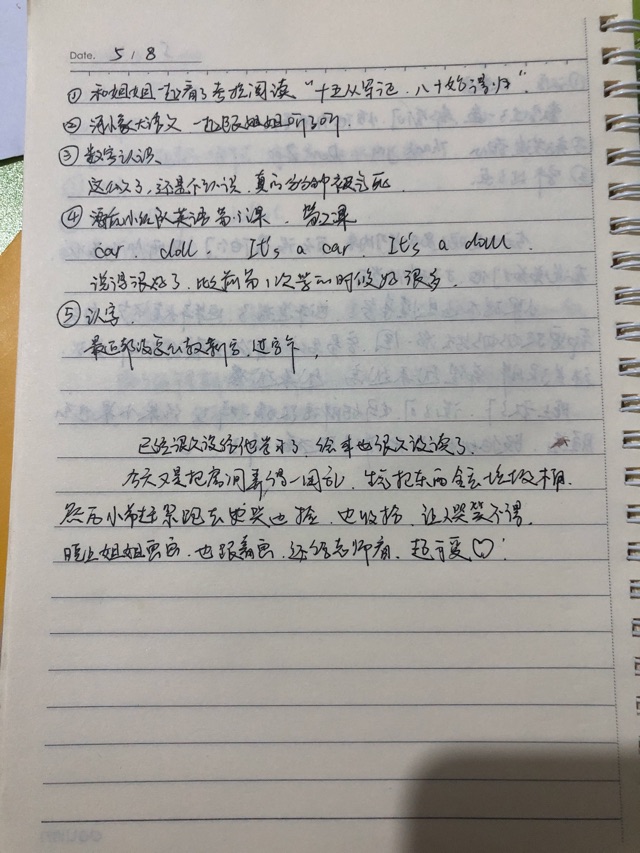 Date. 5 / 8
① 和姐姐一起看了 阅读 "十五从军记,八十始得归".
② 大语文 一起跟姐姐听了听.
③ 数字认识
这么久了,还是不认识,真的分分钟被气死.
④ 英语第1课. 第2课
car. doll. It's a car. It's a doll.
说得很好了,比前第1次学的时候好很多.
⑤ 认字.
最近都没怎么教新字,过字卡,
已经很久没给他学习了,绘本也很久没读了.
今天又是把房间弄得一团乱, 把东西全丢垃圾桶.
然后小 跑去 也捡,也收拾,让人哭笑不得.
晚上姐姐画画,也跟着画,还给老师看,超可爱♡.
deli